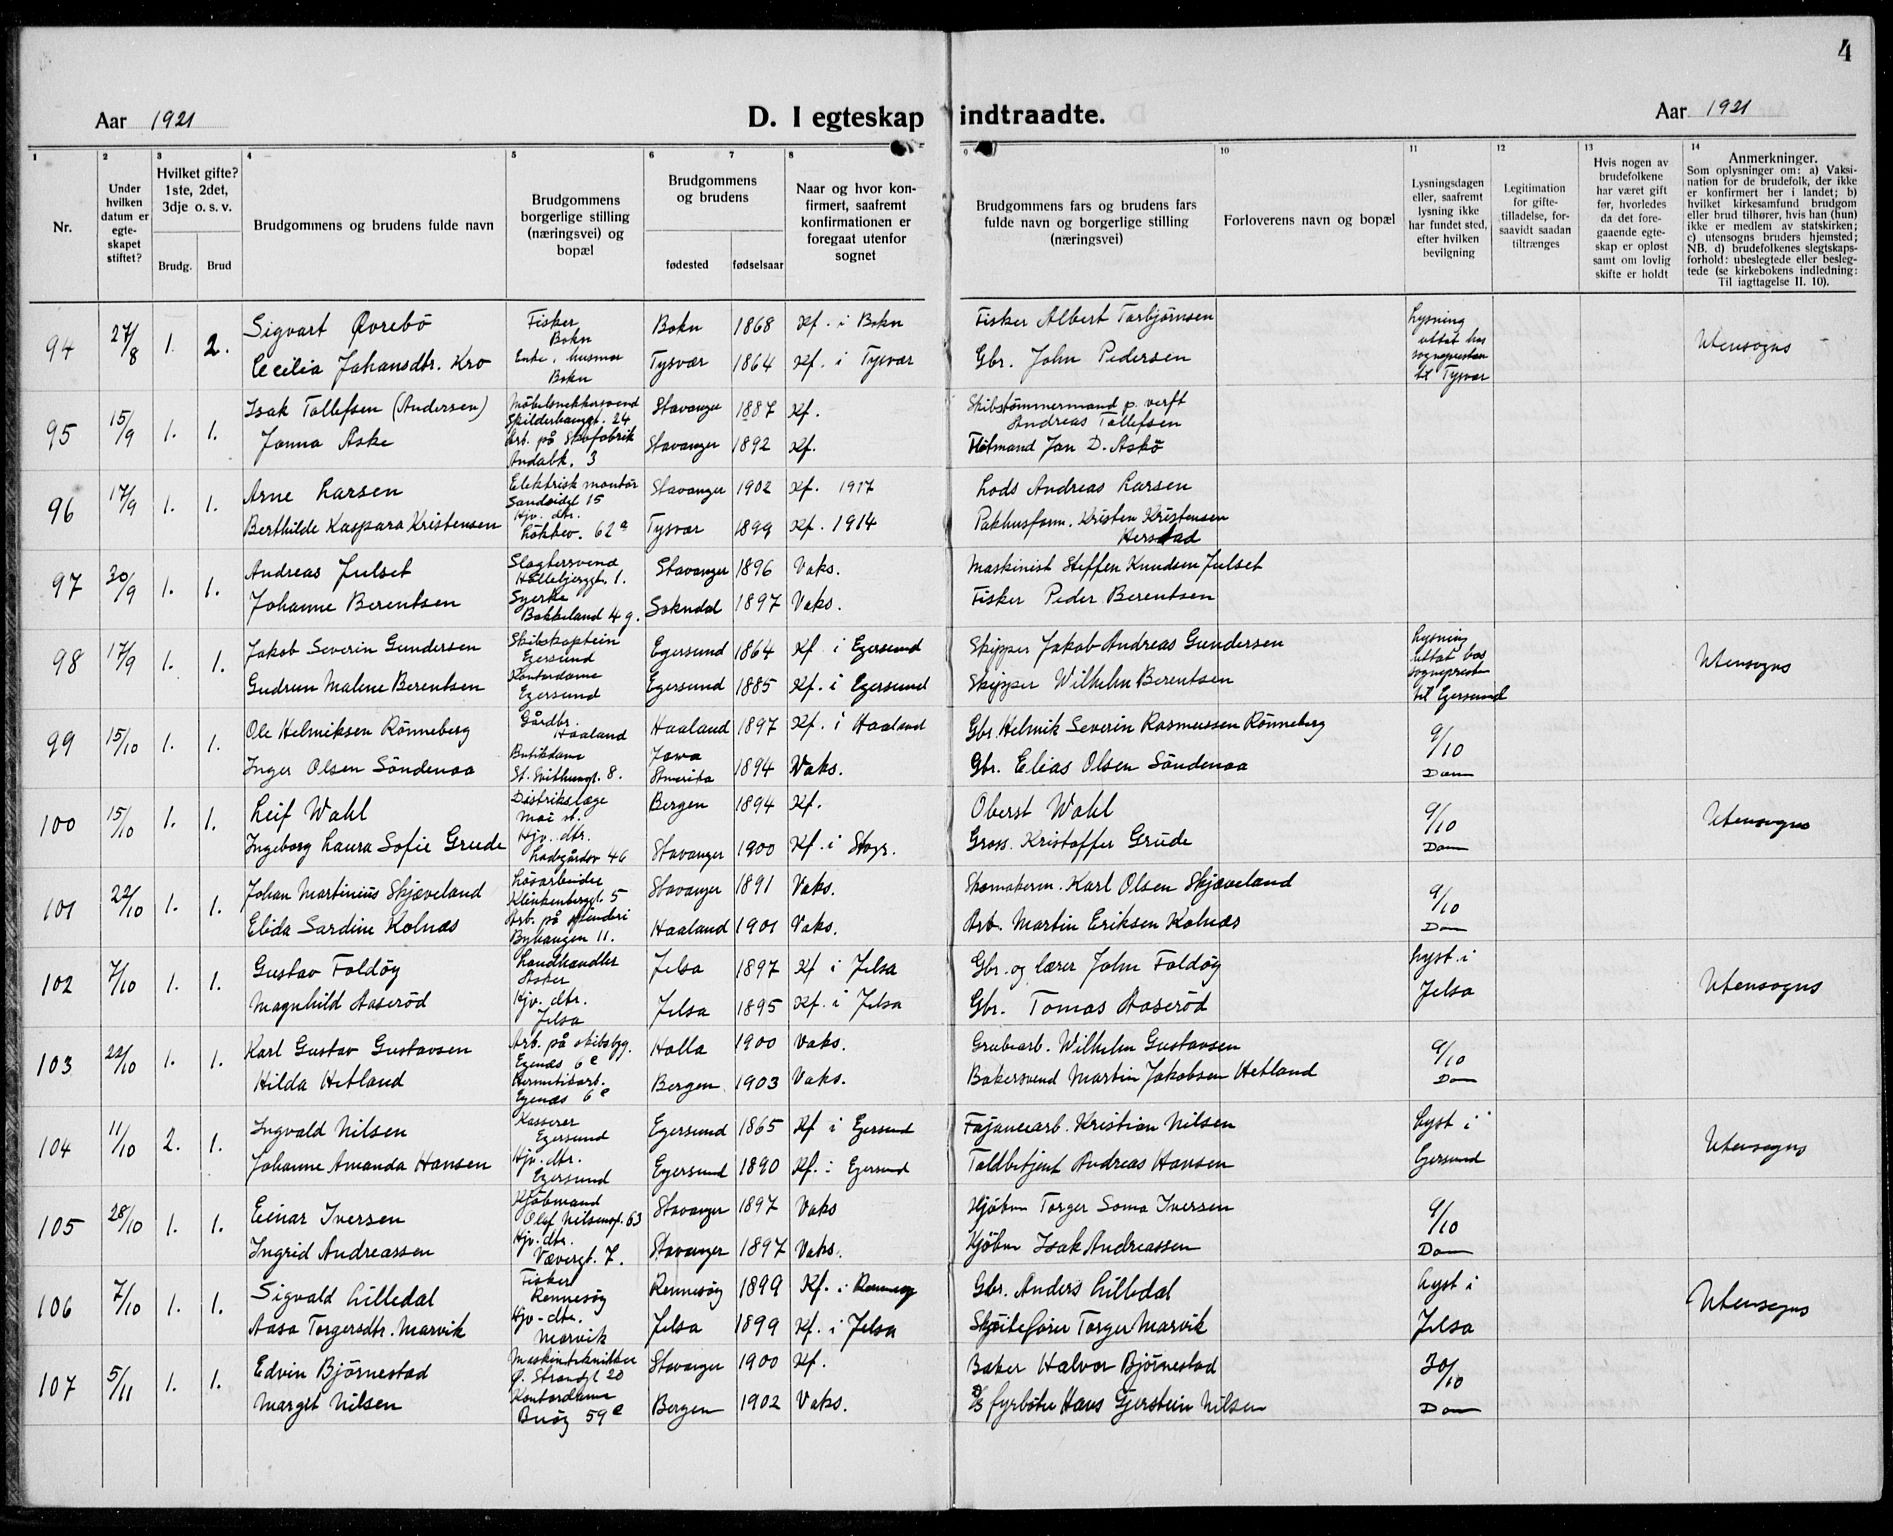 4
Aar 1921 D. I egteskap indtraadte. Aar 1921
1 2 3 4 5 6 7 8 9 10 11 12 13 14
Nr.
Under hvilken datum er egteskapet stiftet?
Hvilket gifte? 1ste, 2det, 3dje o. s. v.
Brudg. Brud
Brudgommens og brudens fulde navn
Brudgommens borgerlige stilling (næringsvei) og bopæl
Brudgommens og brudens
fødested fødselsaar
Naar og hvor konfirmert, saafremt konfirmationen er foregaat utenfor sognet
Brudgommens fars og brudens fars fulde navn og borgerlige stilling (næringsvei)
Forloverens navn og bopæl
Lysningsdagen eller, saafremt lysning ikke har fundet sted, efter hvilken bevilgning
Legitimation for giftetilladelse, forsaavidt saadan tiltrænges
Hvis nogen av brudefolkene har været gift før, hvorledes da det foregaaende egteskap er opløst samt om lovlig skifte er holdt
Anmerkninger.
Som oplysninger om: a) Vaksination for de brudefolk, der ikke er konfirmert her i landet; b) hvilket kirkesamfund brudgom eller brud tilhører, hvis han (hun) ikke er medlem av statskirken; c) utensogns bruders hjemsted; NB. d) brudefolkenes slegtskapsforhold: ubeslegtede eller beslegtede (se kirkebokens indledning: Til iagttagelse II. 10).
94 27/8 1. 2. Sigvart Øvrebö Fisker Bokn Bokn 1868 Kf. i Bokn Fisker Albert Torbjörnsen Lysning uttat hos sognepresten til Tysvær Utensogns
Cecilia Johansdtr. Kro Enke, husmor Bokn Tysvær 1864 Kf. i Tysvær Gbr. John Pedersen
95 15/9 1. 1. Isak Tollefsen (Andersen) Möbelsnekkersvend 24 Stavanger 1887 Kf. Skibstömmermand p. verft Andreas Tollefsen
Janna Aske Arb. på Skofabrik Andabk. 3 Stavanger 1892 Kf. Jan D. Askö
96 17/9 1. 1. Arne Larsen Elektrisk montör Sandeidgt 15 Stavanger 1902 Kf. 1917 Lods Andreas Larsen
Berthilde Kaspara Kristensen Hjv. dtr. Lökkev. 62 a Tysvær 1899 Kf. 1914 Pakhusform. Kristen Kristensen Herstad
97 30/9 1. 1. Andreas Julset Slagtersvend Hellebjerggt. 1. Stavanger 1896 Vaks. Maskinist Steffen Knudsen Julset
Johanne Berentsen Syerske Bakkeland 4 g. Sokndal 1897 Vaks. Fisker Peder Berentsen
98 17/9 1. 1. Jakob Severin Gundersen Skibskaptein Egersund Egersund 1864 Kf i Egersund Skipper Jakob Andreas Gundersen Lysning uttat hos sogneprest til Egersund Utensogns
Gudrun Malene Berentsen Kontordame Egersund Egersund 1885 Kf. i Egersund Skipper Wilhelm Berentsen
99 15/10 1. 1. Ole Helmiksen Rönneberg Gårdbr. Haaland Haaland 1897 Kf. i Haaland Gbr. Helmik Severin Rasmussen Rönneberg 9/10 Dom
Inger Olsen Söndenaa Butikdame St. Svithunsgt. 8. Jowa 1894 Vaks. Gbr. Elias Olsen Söndenaa
100 15/10 1. 1. Leif Wahl Distriktslæge Moi st. Bergen 1894 Kf. Oberst Wahl 9/10 Dom Utensogns
Ingeborg Laura Sofie Grude Hjv. dtr. Ladegårdsv 46 Stavanger 1900 Kf. i Stvgr. Gross. Kristoffer Grude
101 22/10 1. 1. Johan Martinius Skjæveland Lösarbeider Klinkenberggt. 5 Stavanger 1891 Vaks. Skomakerm. Karl Olsen Skjæveland 9/10 Dom
Elida Sardine Kolnæs Arb. på spinderi Byhaugen 11. Haaland 1901 Vaks. Arb. Martin Eriksen Kolnæs
102 7/10 1. 1. Gustav Foldöy Landhandler Jelsa 1897 Kf i Jelsa Gbr. og lærer John Foldöy Lyst i Jelsa Utensogns
Magnhild Aaseröd Hjv. dtr. Jelsa Jelsa 1895 Kf. i Jelsa Gbr. Tomas Aaseröd
103 22/10 1. 1. Karl Gustav Gustavsen Arb. på skibsbyg. Egenæs 6 e Holla 1900 Vaks. Grubearb. Wilhelm Gustavsen 9/10 Dom
Hilda Hetland Hermetikarb. Egenæs 6 e Bergen 1903 Vaks. Bakersvend Martin Jakobsen Hetland
104 11/10 2. 1. Ingvald Nilsen Kasserer Egersund Egersund 1865 Kf i Egersund Fajancearb. Kristian Nilsen Lyst i Egersund Utensogns
Johanne Amanda Hansen Hjv. dtr. Egersund Egersund 1890 Kf. i Egersund Toldbetjent Andreas Hansen
105 28/10 1. 1. Einar Iversen Kjöbmand Olaf Nilsensgt. 63 Stavanger 1897 Vaks Kjöbm Torger Soma Iversen 9/10 Dom
Ingrid Andreassen Hjv. dtr. Vævergt. 7. Stavanger 1897 Vaks. Kjöbm Isak Andreassen
106 7/10 1. 1. Sigvald Lilledal Fisker Rennesöy Rennesöy 1899 Kf. i Rennesöy Gbr. Anders Lilledal Lyst i Jelsa Utensogns
Aasa Torgersdtr. Marvik Hjv. dtr. Marvik Jelsa 1899 Kf. i Jelsa Skjöitefører Torger Marvik
107 5/11 1. 1. Edvin Björnestad Maskintekniker Ö. Strandgt 20 Stavanger 1900 Kf. Baker Halvor Björnestad 30/10 Dom
Margit Nilsen Kontordame Buöy 59 e Bergen 1902 Vaks. D/S fyrböter Hans Gjerstein Nilsen